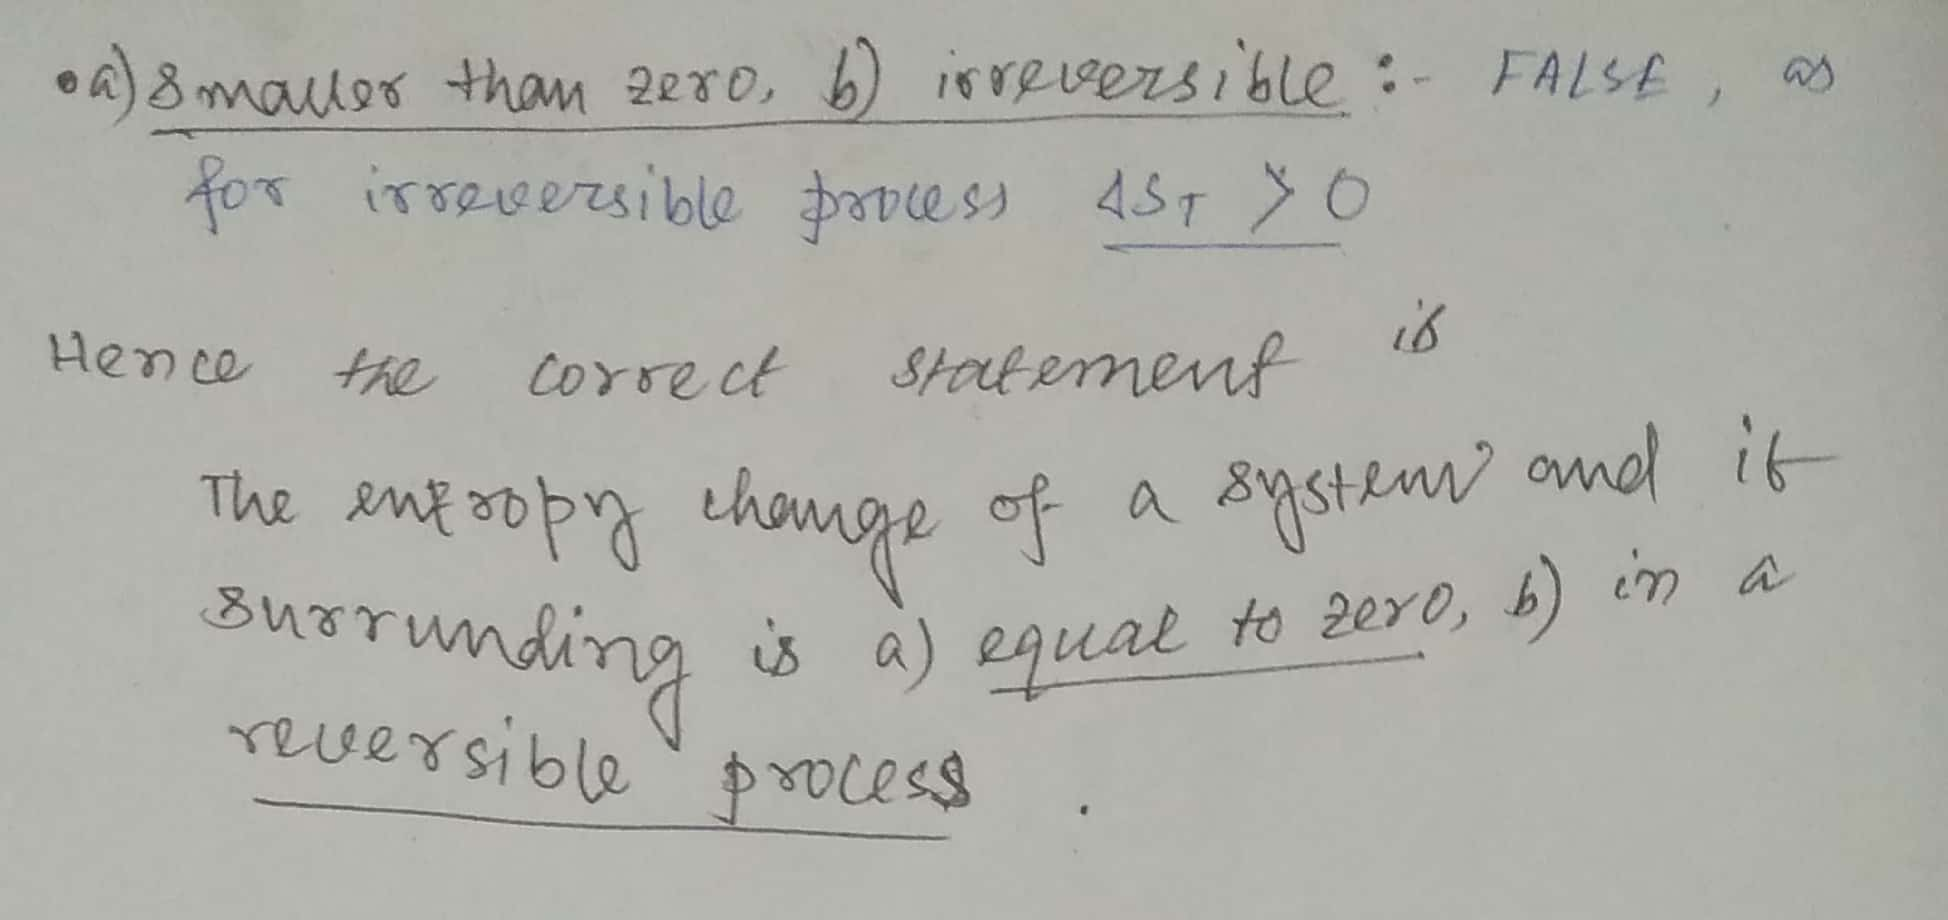 • a) Smaller than zero, b) irreversible :- FALSE, as
for irreversible process ΔS_T > 0
Hence the correct statement is
The entropy change of a system and it
surrunding is a) equal to zero, b) in a
reversible process.